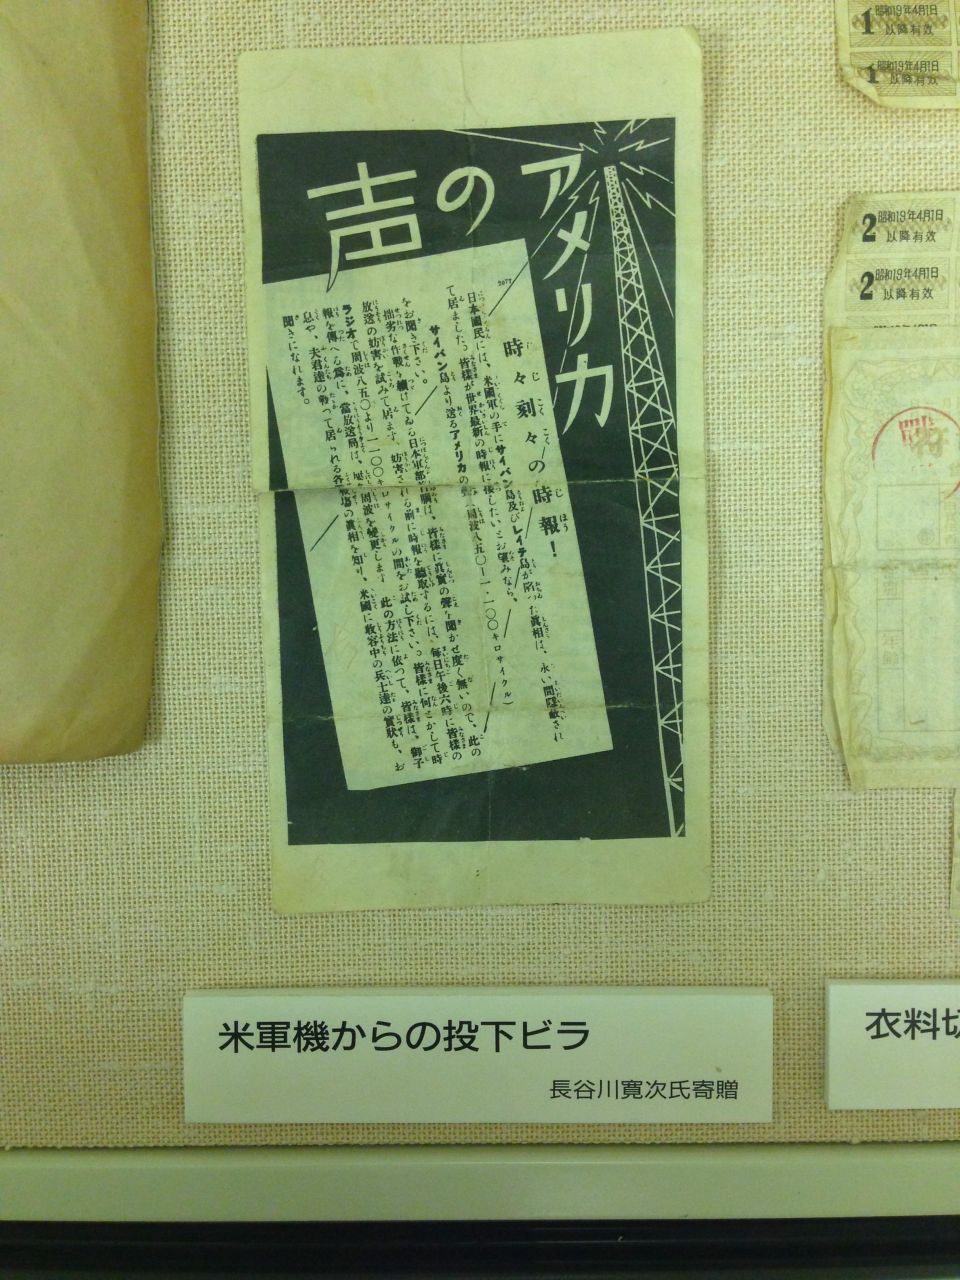 アメリカの声
2077
時々刻々の時報!
日本國民には、米國軍の手にサイパン島及びレイテ島が陥った眞相は、永い間隠蔽され
て居ました。皆様が世界最新の時報に接したいとお望みなら、
サイパン島より送るアメリカの聲(周波八五〇—一・一〇〇キロサイクル)
をお聞き下さい。
拙劣な作戰を續けてゐる日本軍部首脳は、皆様に眞實の聲を聞かせ度く無いので、此の
放送の妨害を試みて居ます。妨害される前に時報を聽取するには、毎日午後六時に皆様の
ラジオで周波八五〇より一一〇〇キロサイクルの間をお試し下さい。皆様に何とかして時
報を傳へる爲に、當放送局は、屡々周波を變更します 此の方法に依つて、皆様は、御子
息や、夫君達の戰って居られる各戰場の眞相を知り、米國に收容中の兵士達の實狀も、お
聞きになれます。
米軍機からの投下ビラ
長谷川寛次氏寄贈
1 昭和19年4月1日
以降有效
1 昭和19年4月1日
以降有效
2 昭和19年4月1日
以降有效
2 昭和19年4月1日
以降有效
衣料切